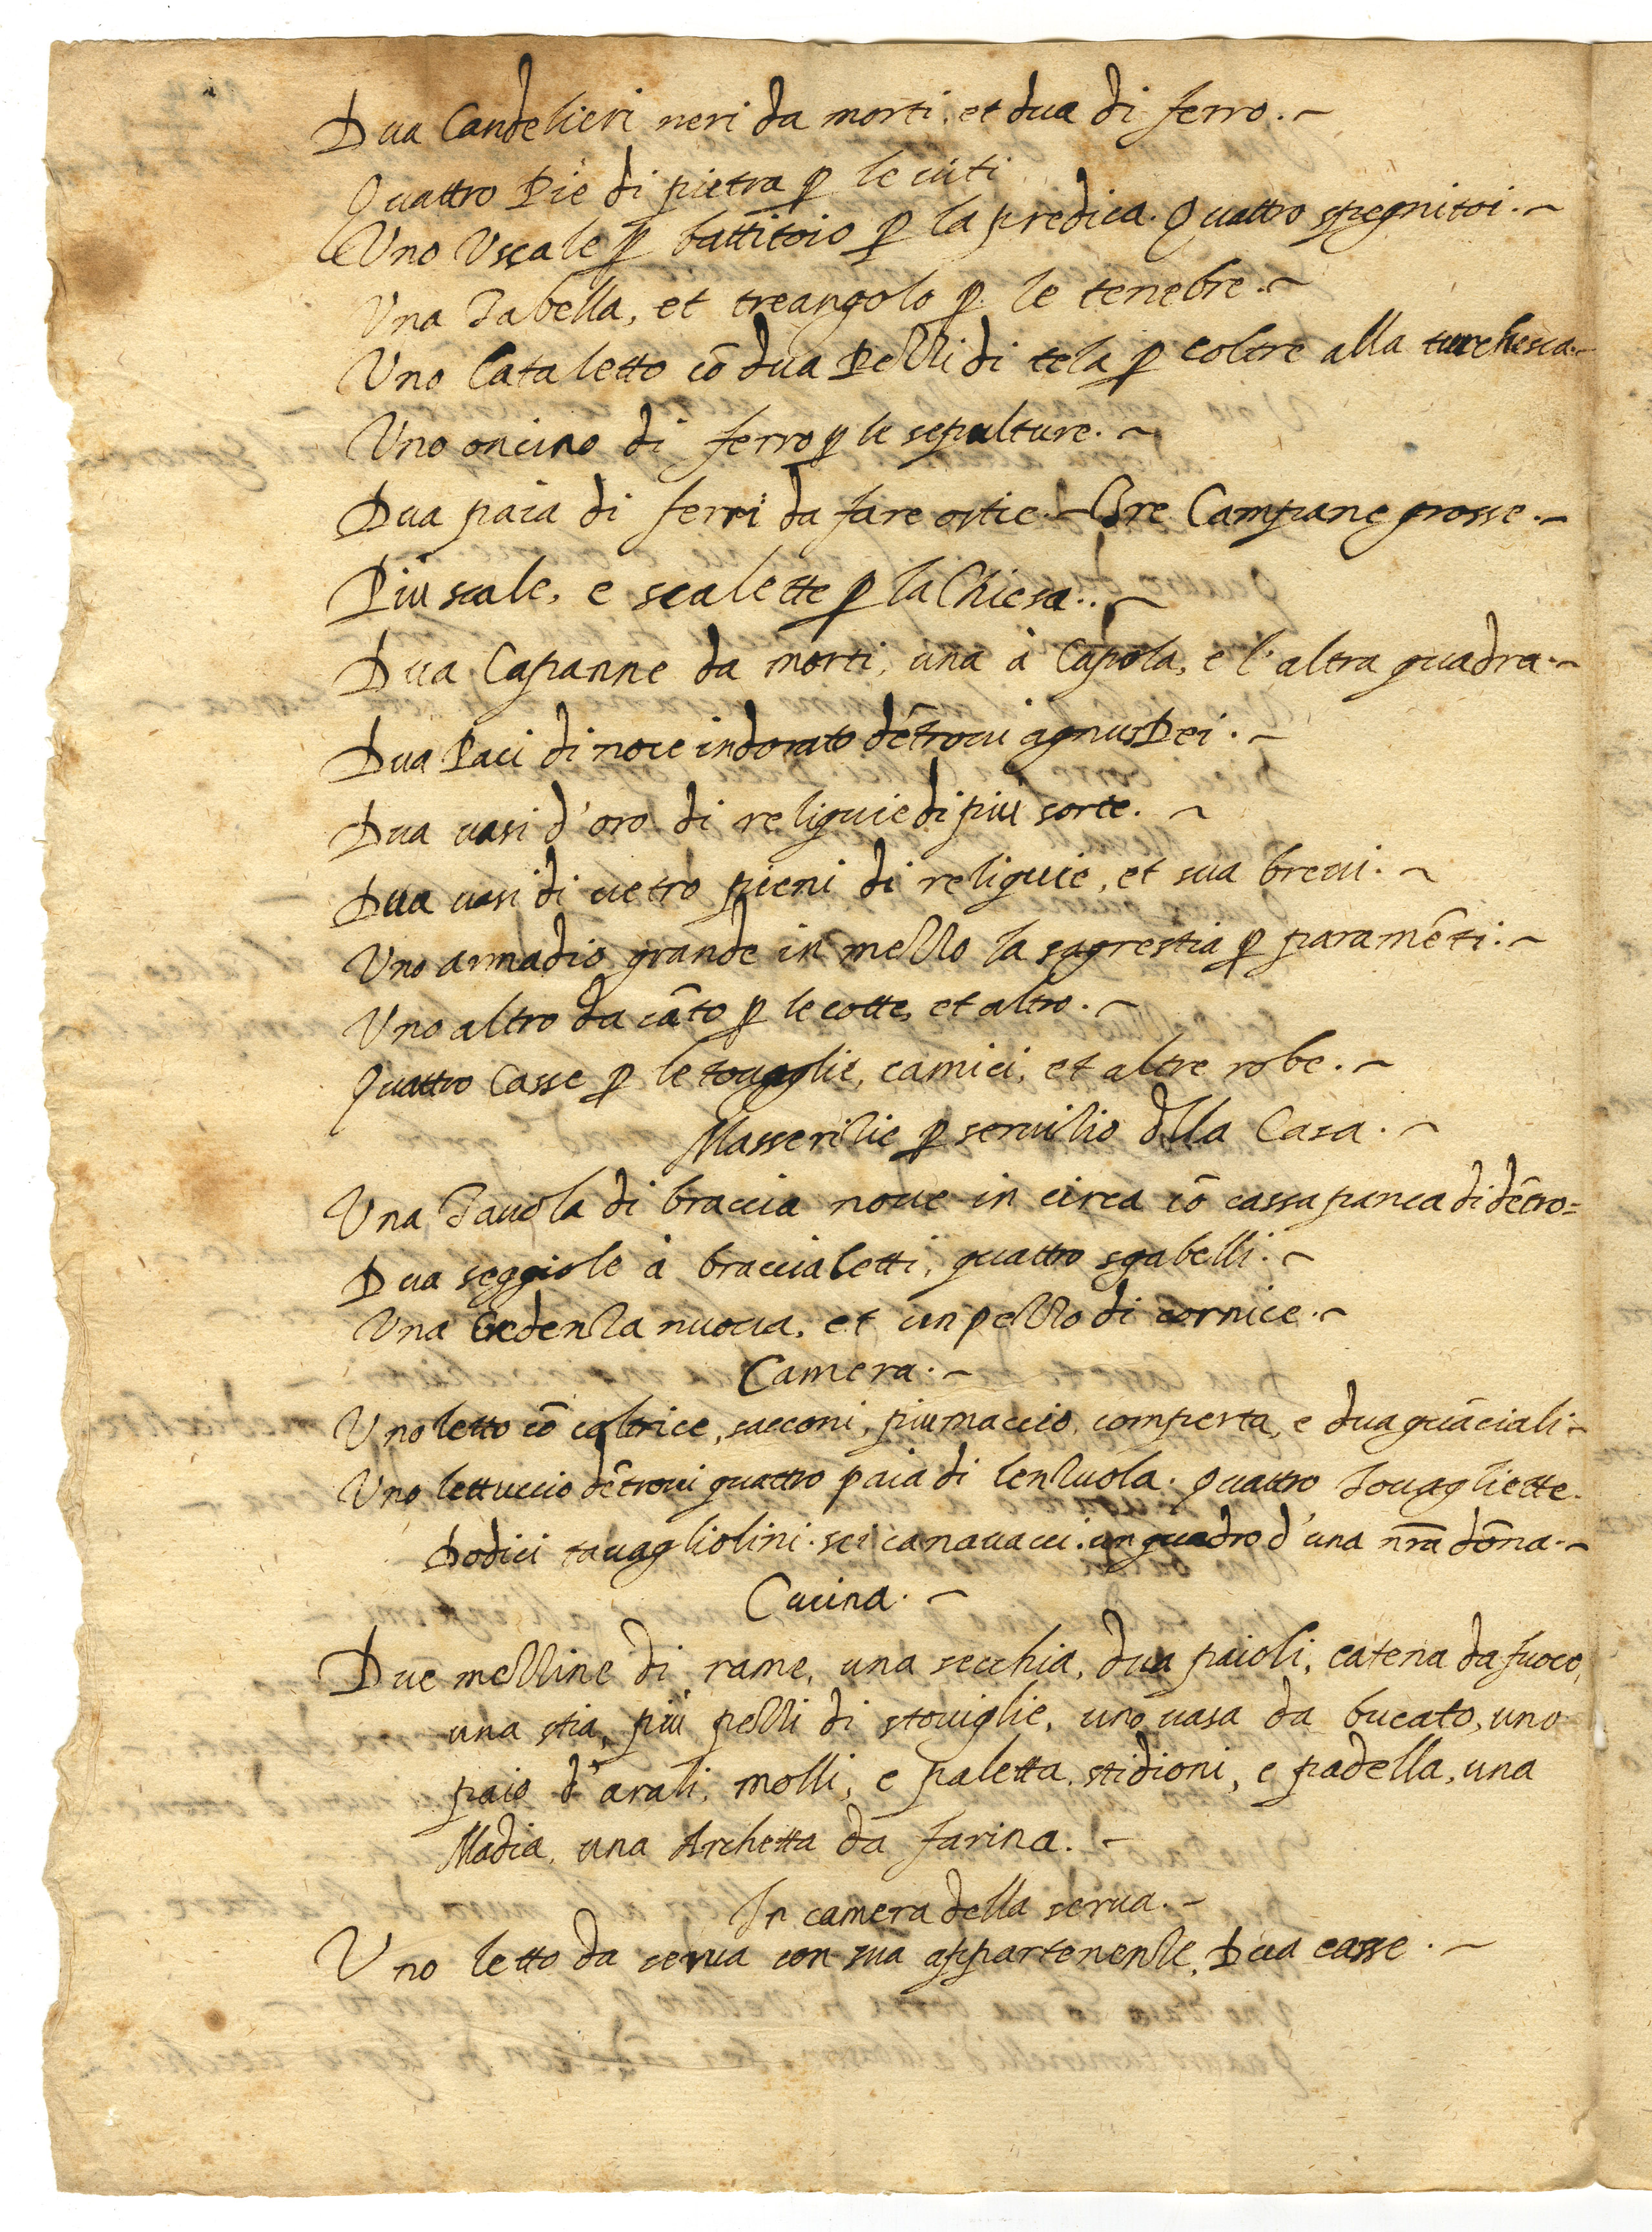 Dua Candelieri neri da morti, et dua di ferro.~
Quattro Piè di pietra ꝑ le uiti
Uno Uscale ꝑ battitoio ꝑ la predica. Quattro spegnitoi.~
Una Tabella, et treangolo ꝑ le tenebre.~
Uno Cataletto cō dua Pezzi di tela ꝑ coltre alla turchesca.~
Uno oncino di ferro ꝑ le sepulture.~
Dua paia di ferri da fare ostie.~ Tre Campane grosse.~
Più scale, e scalette ꝑ la Chiesa..~
Dua Capanne da morti, una à Capola, e l'altra quadra.~
Dua Paci di noce indorato dētroui agnus Dei.~
Dua uasi d'oro di reliquie di più sorte.~
Dua uasi di uetro pieni di reliquie, et sua breui.~
Uno armadio grande in mezzo la sagrestia ꝑ paramēti.~
Uno altro da cāto ꝑ le cotte, et altro.~
Quattro Casse ꝑ le touaglie, camici, et altre robe.~
Masserizie ꝑ seruizio dlla Casa.~
Una Tauola di braccia noue in circa cō cassapanca di dētro=
Dua seggiole à braccialetti, quattro sgabelli.~
Una Credenza nuoua, et un pezzo di cornice.~
Camera.~
Uno letto cō coltrice, sacconi, piumaccio, comperta, e dua guāciali.~
Uno lettuccio dētroui quattro paia di lenzuola. Quattro Touagliette.
Dodici tauagliolini. sei canauacci. un quadro d'una nr̃a dōna.~
Cucina.~
Due mezzine di rame, una secchia, dua paioli, catena da fuoco,
una stia, più pezzi di stouiglie, uno uasa da bucato, uno
paio d'arali, molli, e paletta, stidioni, e padella, una
Madia, una Archetta da farina.~
In camera della serua.~
Uno letto da serua con sua appartenenze, Dua casse.~